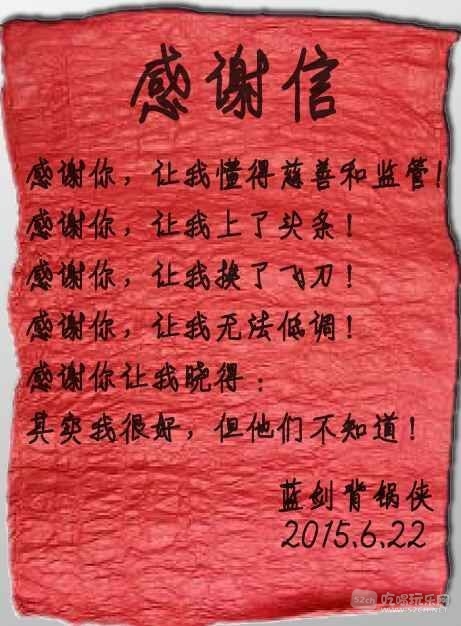 感谢信
感谢你，让我懂得慈善和监管！
感谢你，让我上了头条！
感谢你，让我换了飞刀！
感谢你，让我无法低调！
感谢你让我晓得：
其实我很好，但他们不知道！
蓝剑背锅侠
2015.6.22
吃喝玩乐网